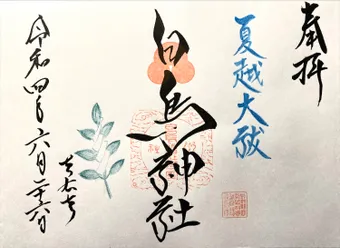 奉拝
夏越大祓
白鳥神社
令和四年六月二十六日